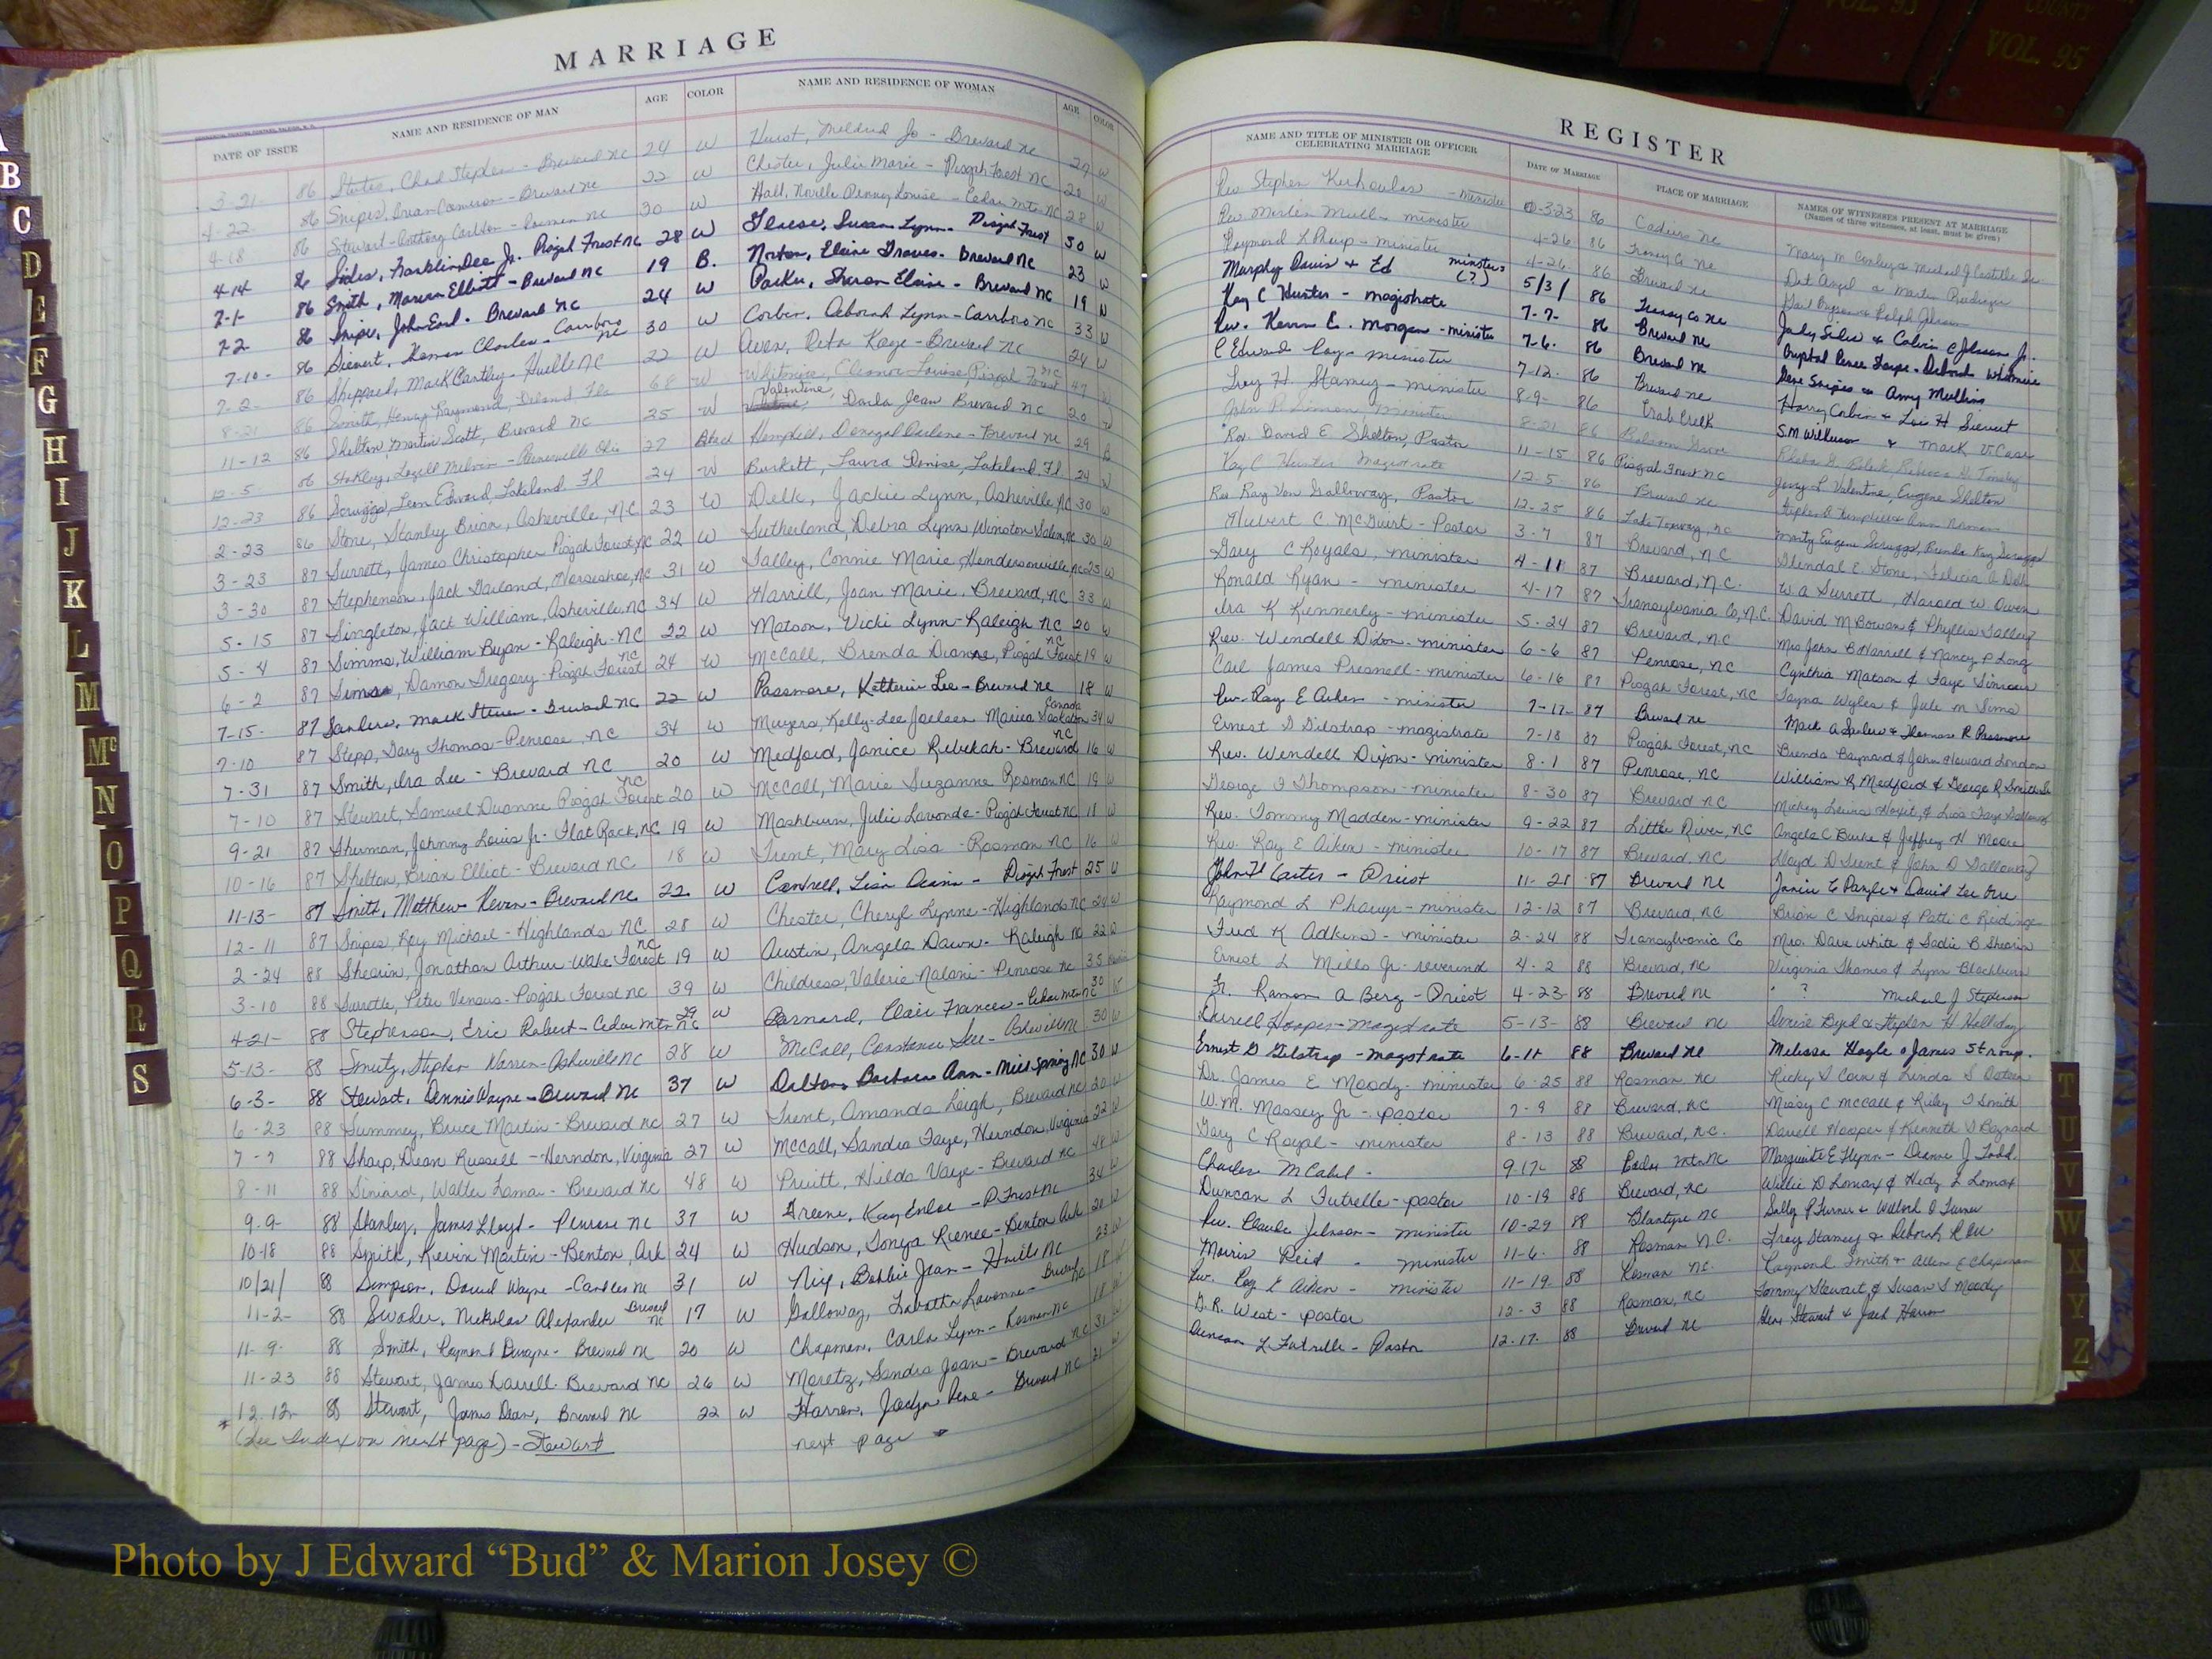 MARRIAGE
DATE OF ISSUE NAME AND RESIDENCE OF MAN AGE COLOR NAME AND RESIDENCE OF WOMAN AGE COLOR
3-21 86 Stephen - Brevard NC 24 W Hurst, Mildred Jo - Brevard NC 27 W
4-22 86 Snipes, Brian Cameron - Brevard NC 22 W Chester, Julie Marie - Pisgah Forest NC 20 W
4-18 86 Stewart - Anthony Carlton - Rosman NC 30 W Hall, Penny Louise - Cedar Mtn NC 28 W
4-14 86 Sides, Franklin Dee Jr. Pisgah Forest NC 28 W Susan Lynn - Pisgah Forest 30 W
7-1- 86 Smith, Elliott - Brevard NC 19 B. Norton, Elaine Graves - Brevard NC 23 W
7-2 86 Snipe, John Earl - Brevard NC 24 W Parker, Sharon Elaine - Brevard NC 19 W
7-10- 86 Sievert, Charles - Carrboro NC 30 W Corbin, Deborah Lynn - Carrboro NC 33 W
7-2- 86 Sheppard, Mark NC 22 W Owen, Reta Kaye - Brevard NC 24 W
8-21 86 Smith, Henry Raymond, Deland Fla 68 W Whitmire, Eleanor Louise, Pisgah Forest NC 47 W
11-12 86 Shelton, Martin Scott, Brevard NC 25 W Valentine, Darla Jean Brevard NC 20 W
12-5 86 Melvin - Ohio 27 Black Hemphill, Darlene - Brevard NC 29 B
12-23 86 Scruggs, Leon Edward, Lakeland Fl 24 W Burkett, Laura Denise, Lakeland Fl 24 W
2-23 86 Stone, Stanley Brian, Asheville, NC 23 W Delk, Jackie Lynn, Asheville, NC 30 W
3-23 87 Surrett, James Christopher Pisgah Forest, NC 22 W Sutherland, Debra Lynn Winston Salem, NC 30 W
3-30 87 Stephenson, Jack Garland, Horseshoe, NC 31 W Talley, Connie Marie, Hendersonville, NC 25 W
5-15 87 Singleton, Jack William, Asheville, NC 34 W Harrill, Joan Marie, Brevard, NC 33 W
5-4 87 Simms, William Bryan - Raleigh - NC 22 W Matson, Vicki Lynn - Raleigh NC 20 W
6-2 87 Sims, Damon Gregory - Pisgah Forest NC 24 W McCall, Brenda Dianne, Pisgah Forest NC 19 W
7-15- 87 Sanders, Mark Steven - Brevard NC 22 W Passmore, Katherine Lee - Brevard NC 18 W
7-10 87 Stepp, Gary Thomas - Penrose, NC 34 W Kelly-Lee Canada 34 W
7-31 87 Smith, Ira Lee - Brevard NC 20 W Medford, Janice Rebekah - Brevard NC 16 W
7-10 87 Stewart, Samuel Duanne Pisgah Forest NC 20 W McCall, Marie Suzanne Rosman NC 19 W
9-21 87 Sherman, Johnny Louis Jr. - Flat Rock, NC 19 W Mashburn, Julie Lavonda - Pisgah Forest NC 18 W
10-16 87 Shelton, Brian Elliot - Brevard NC 18 W Trent, Mary Lisa - Rosman NC 16 W
11-13- 87 Smith, Matthew Kevin - Brevard NC 22 W Cantrell, Lisa - Pisgah Forest 25 W
12-11 87 Snipes, Roy Michael - Highlands NC 28 W Chester, Cheryl Lynne - Highlands NC 24 W
2-24 88 Shearin, Jonathan Arthur - Wake Forest NC 19 W Austin, Angela Dawn - Raleigh NC 22 W
3-10 88 Peter - Pisgah Forest NC 39 W Childress, Valerie - Penrose NC 35
4-21- 88 Stephenson, Eric Robert - Cedar Mtn NC 29 W Barnard, Clair Frances - Cedar Mtn NC 30 W
5-13- 88 Stephen Warren - Asheville NC 28 W McCall, Constance Sue - Asheville NC 30 W
6-3- 88 Stewart, Dennis Wayne - Brevard NC 37 W Dalton, Barbara Ann - Mill Spring NC 30 W
6-23 88 Summey, Bruce Martin - Brevard NC 27 W Trent, Amanda Leigh, Brevard NC 20 W
7-7 88 Sharp, Dean Russell - Herndon, Virginia 27 W McCall, Sandra Faye, Herndon, Virginia 22 W
8-11 88 Siniard, Walter Lamar - Brevard NC 48 W Pruitt, Hilda Vaye - Brevard NC 48 W
9-9- 88 Stanley, James Lloyd - Penrose NC 37 W Greene, Kay Enloe - P Forest NC 34 W
10-18 88 Smith, Kevin Martin - Benton, Ark 24 W Hudson, Tonya Renee - Benton Ark 20 W
10/21/ 88 Simpson, David Wayne - Candler NC 31 W Nix, Bobbie Jean - NC 23 W
11-2- 88 Nickolas Alexander Brevard NC 17 W Galloway, Brevard NC 18 W
11-9- 88 Smith, Raymond Dwayne - Brevard NC 20 W Chapman, Carla Lynn - Rosman NC 18 W
11-23 88 Stewart, James Darrell - Brevard NC 26 W Moretz, Sandra Joan - Brevard NC 31 W
* 12-12- 88 Stewart, James Dean, Brevard NC 22 W Jaclyn Rene - Brevard NC 21 W
(See Index on next page) - Stewart next page
REGISTER
NAME AND TITLE OF MINISTER OR OFFICER CELEBRATING MARRIAGE DATE OF MARRIAGE PLACE OF MARRIAGE NAMES OF WITNESSES PRESENT AT MARRIAGE
(Names of three witnesses, at least, must be given)
Rev Stephen - minister 3-23 86 NC
Rev Merlin Mull - minister 4-26 86 Transy Co NC Mary M
Raymond L - minister 4-26 86 Brevard NC
Murphy Davis & Ed ministers (?) 5/3/ 86 Transy Co NC
Kay C Hunter - magistrate 7-7- 86 Brevard NC Calvin C Johnson Jr.
Rev. Kevin E. Morgan - minister 7-6- 86 Brevard NC Crystal Renee - Deborah Whitmire
C Edward - minister 7-12- 86 Brevard NC Gene Snipes & Amy Mullins
Troy H. Stamey - minister 8-9- 86 Crab Creek Harry Corbin & Lois H Sievert
John P. Simon, minister 8-21 86 Balsam Grove S.M. Wilkerson & Mark V Case
Rev. David E. Shelton, Pastor 11-15 86 Pisgah Forest NC
Kay C Hunter Magistrate 12-5 86 Brevard NC Jerry L Valentine, Eugene Shelton
Rev Ray Von Galloway, Pastor 12-25 86 Lake Toxaway, NC
Hubert C. McGuirt - Pastor 3-7 87 Brevard, NC Monty Eugene Scruggs, Brenda Kay Scruggs
Gary C Royals, minister 4-11 87 Brevard, N.C. Glendal E. Stone, Felicia A Delk
Ronald Ryan - minister 4-17 87 Transylvania Co, N.C. W A Surrett, Harold W. Owen
Ira K Kennerly - minister 5-24 87 Brevard, NC David M Bowen & Phyllis Talley
Rev. Wendell Dixon - minister 6-6 87 Penrose, NC Mrs John B Harrell & Nancy P Long
Carl James Presnell - minister 6-16 87 Pisgah Forest, NC Cynthia Matson & Faye
Rev. Ray E Aiken - minister 7-17- 87 Brevard NC Tayna Wyles & Julie M Sims
Ernest G Gilstrap - magistrate 7-18 87 Pisgah Forest, NC Mark A & Thomas R Passmore
Rev. Wendell Dixon - minister 8-1 87 Penrose, NC Brenda Baynard & John Howard London
George F Thompson - minister 8-30 87 Brevard NC William R Medford & George R Smith Sr
Rev. Tommy Madden - minister 9-22 87 Little River, NC Mickey & Lisa Faye Galloway
Rev. Ray E Aiken - minister 10-17 87 Brevard, NC Angela C Burke & Jeffrey H Moore
John H Carter - Priest 11-21 87 Brevard NC Lloyd D Trent & John D Galloway
Raymond L - minister 12-12 87 Brevard, NC Janice E & David Lee
Fred K Adkins - minister 2-24 88 Transylvania Co Brian C Snipes & Patti C
Ernest L Mills Jr - reverend 4-2 88 Brevard, NC Mrs. Dave White & Sadie B Shearin
Fr. Ramon A Berg - Priest 4-23 88 Brevard NC Virginia Thames & Lynn Blackburn
Darrell Hooper - magistrate 5-13- 88 Brevard NC ? Michael J Stephenson
Ernest G Gilstrap - magistrate 6-11 88 Brevard NC Denise Byrd & Stephen H Holliday
Dr. James E Moody - minister 6-25 88 Rosman NC Melissa Hogle & James Stroup.
W.M. Massey Jr - pastor 7-9 88 Brevard, NC Ricky & Linda S
Gary C Royal - minister 8-13 88 Brevard, N.C. Missy C McCall & Riley T Smith
Charles M - 9-17- 88 Cedar Mtn NC Darrell Hooper & Kenneth D Baynard
Duncan L Futrelle - pastor 10-18 88 Brevard, NC Marguerite E Flynn - Dianne J Todd
Rev. Claude Johnson - minister 10-29 88 Blantyre NC Willie D Lomax & Hedy L Lomax
Morris Reid - minister 11-6- 88 Rosman N.C. Sally P Turner & D Turner
Rev. Ray E Aiken - minister 11-19 88 Rosman NC Troy Stamey & Deborah R
G.R. West - pastor 12-3 88 Rosman, NC Raymond Smith & Allen E Chapman
Duncan L Futrelle - Pastor 12-17- 88 Brevard NC Tommy Stewart & Susan S Moody
Gene Stewart & Jack
A
B
C
D
E
F
G
H
I
J
K
L
M
Mc
N
O
P
Q
R
S
T
U
V
W
X
Y
Z
VOL. 93
COUNTY
VOL. 95
Photo by J Edward “Bud” & Marion Josey ©